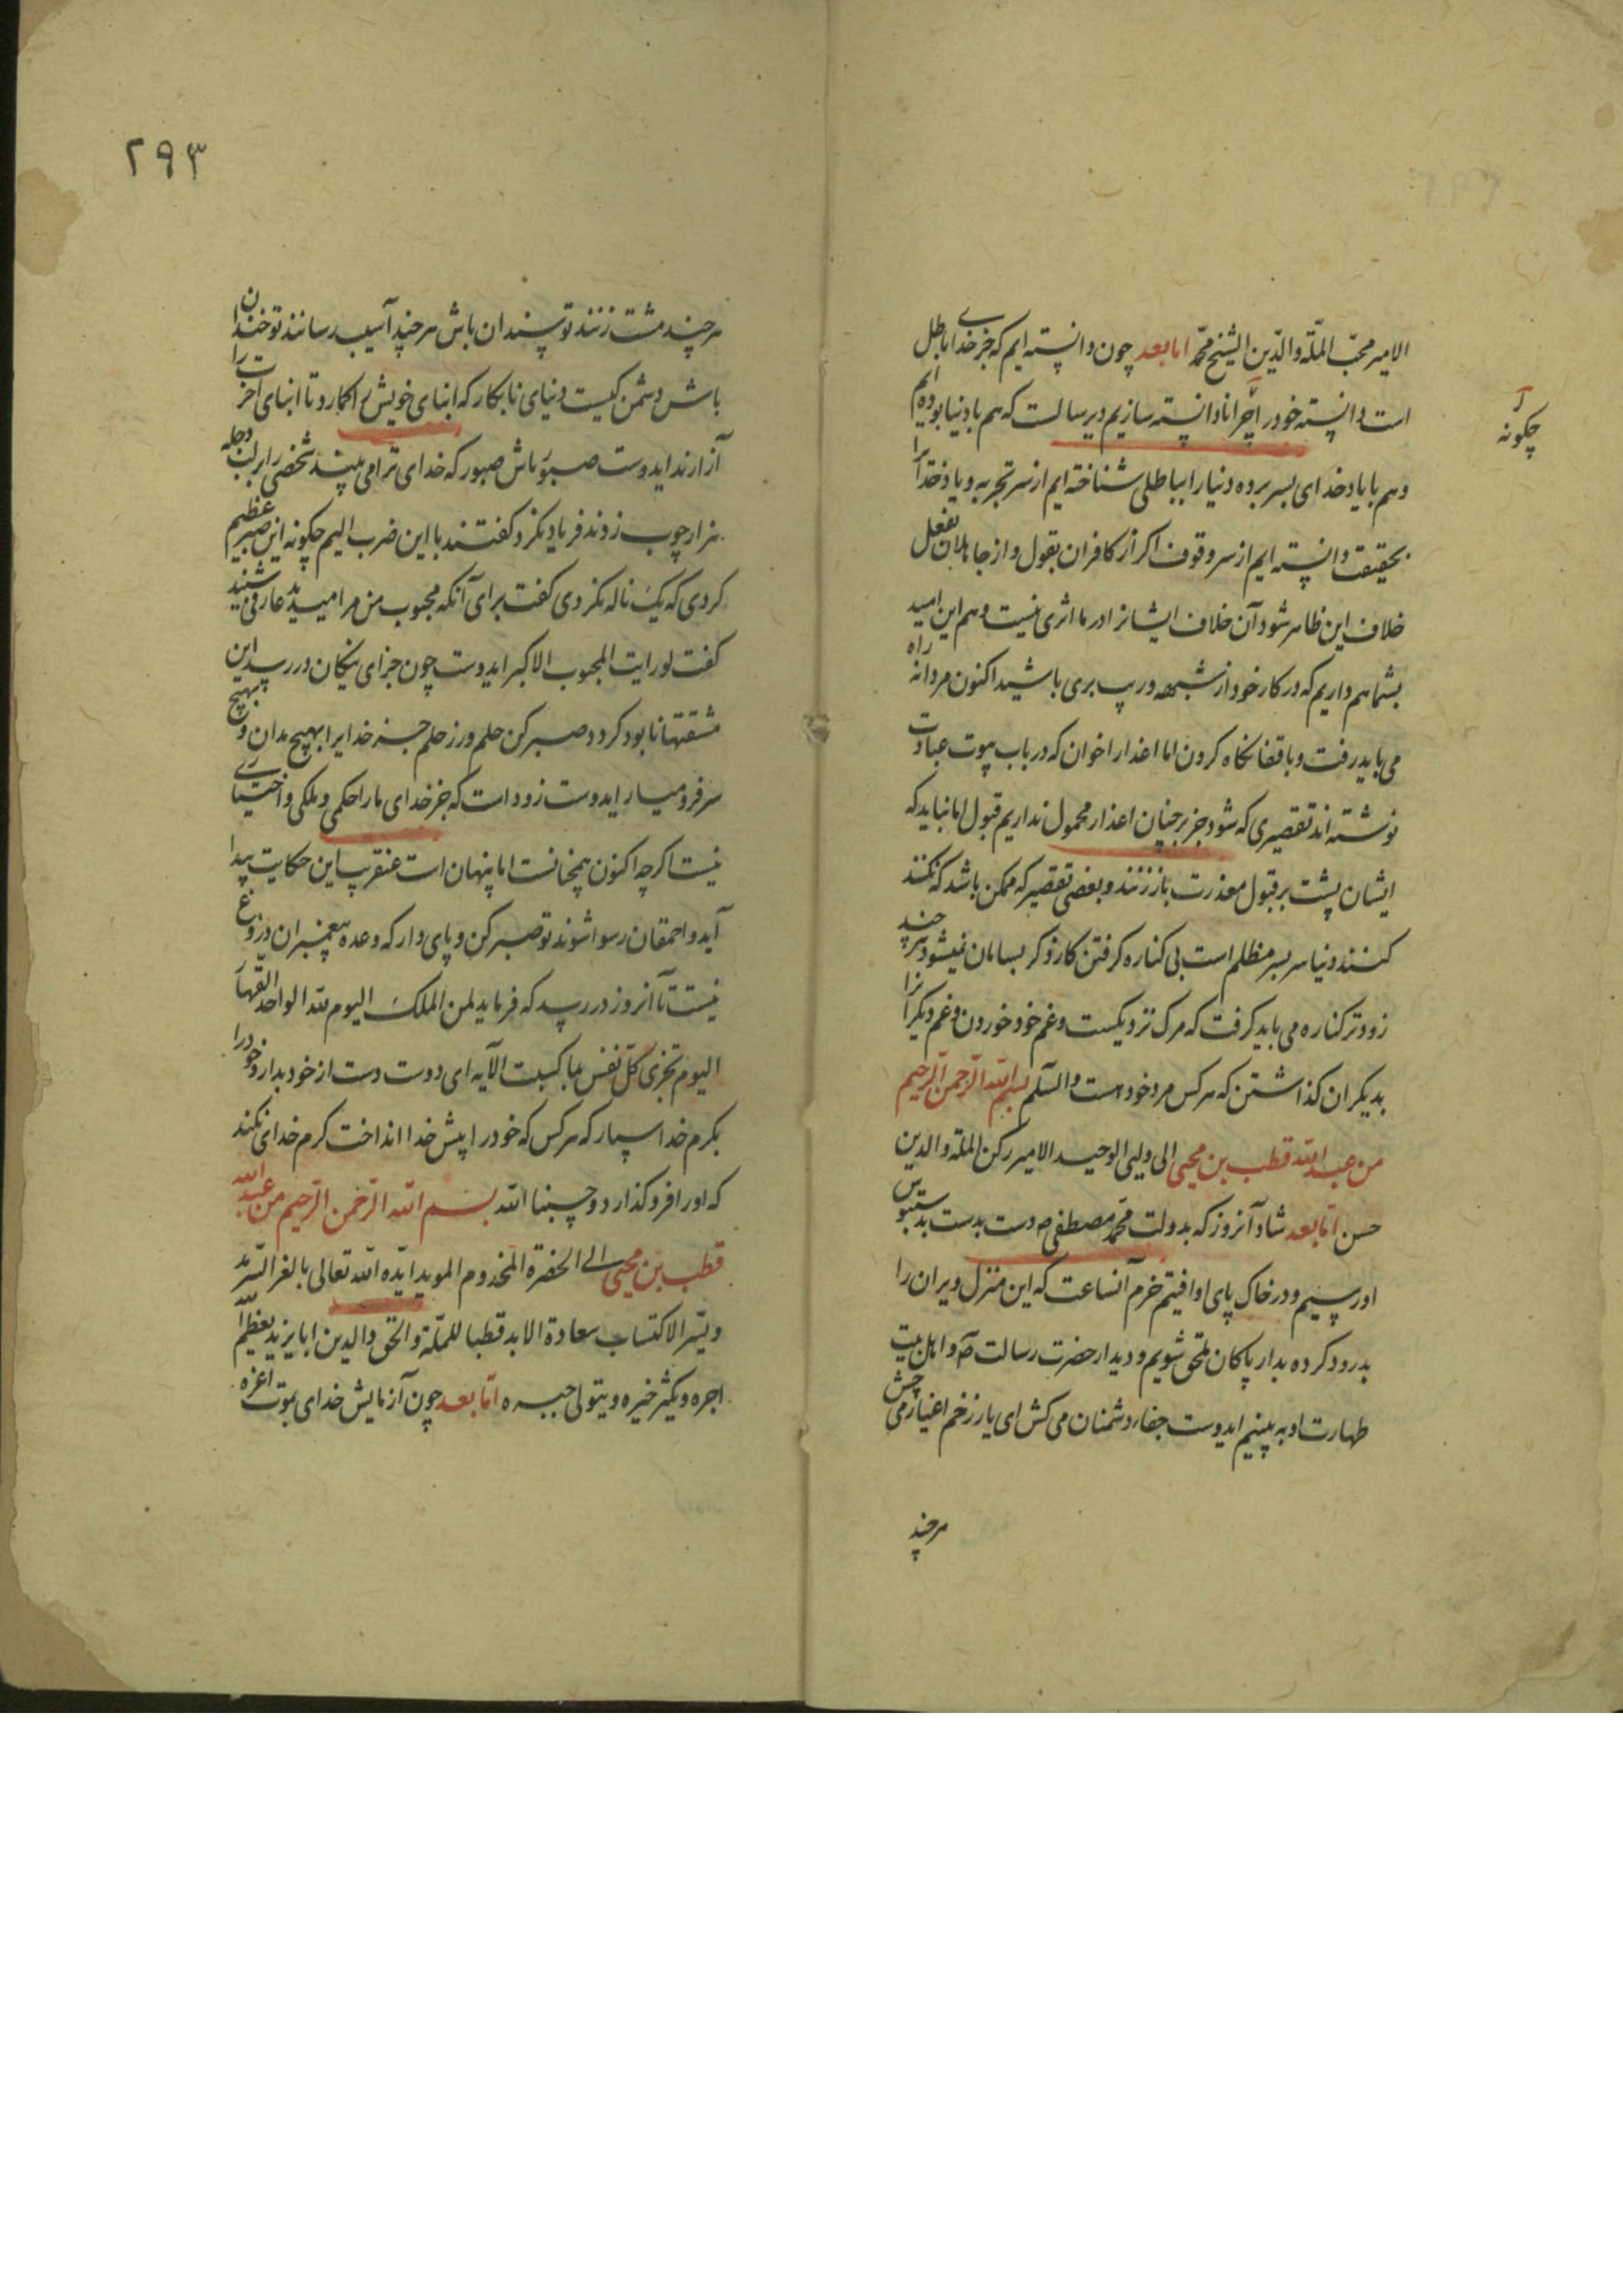 الامیر محبّ الملّه والدّین الشیخ محمّد امابعد چون دانسته ایم که جز خدای باطل
است دانسته خود را چرا نادانسته سازیم دیر سالست که هم با دنیا بوده ایم
چگونه
و هم با یاد خدای بسر برده دنیا را بباطلی شناخته ایم از سر تجربه و یاد خدا را
بحقیقت دانسته ایم از سر وقوف اگر از کافران بقول و از جاهلان بفعل
خلاف این ظاهر شود آن خلاف ایشانرا در ما اثری نیست و هم این امید
بشما هم داریم که در کار خود از شبهه و ریب بری باشید اکنون مردانه راه
می باید رفت و با قفا نگاه کردن اما اعذار اخوان که در باب بیوت عبادت
نوشته اند تقصیری که شود جز بر چنان اعذار محمول نداریم قبول اما نباید که
ایشان پشت بر قبول معذرت باز زنند و بعضی تقصیر که ممکن باشد که نکنند
کنند دنیا سر بسر مظلم است بی کناره گرفتن کار ذکر بسامان نمیشود هر چند
زودتر کناره می باید گرفت که مرک نزدیکست و غم خود خوردن و غم دیگرانرا
بدیکران گذاشتن که هر کس مرد خود است والسّلم بسم الله الرّحمن الرّحیم
من عبد الله قطب بن محیی الی ولیی الوحید الامیر رکن الملّة والدین
حسن امّابعد شاد آنروز که بدولت محمّد مصطفی ص دست بدست بدستبوس
او رسیم و در خاک پای او افتیم خرم آنساعت که این منزل ویران را
بدرود کرده بدار پاکان ملحق شویم و دیدار حضرت رسالت ص و اهل بیت
طهارت او به بینیم ایدوست جفاء دشمنان می کش ای یار زخم اغیار می چش
هرچند
۲۹۳
هر چند مشت زنند تو سندان باش هر چند آسیب رسانند تو خندان
باش دشمن کیست دنیای نابکار که ابنای خویش را گمارد تا ابنای آخرت را
آزارند ایدوست صبور باش صبور که خدای ترا می بیند شخصی را بر لب دجله
هزار چوب زدند فریاد نکرد گفتند با این ضرب الیم چگونه این صبر عظیم
کردی که یک ناله نکردی گفت برای آنکه محبوب من مرا میدید عارفی شنید
گفت لو رایت المحبوب الاکبر ایدوست چون جزای نیکان در رسد این
مشقتها نابود گردد صبر کن حلم ورز حلم جز خدایرا بهیچ مدان و بهیچ
سر فرو میار ایدوست زود است که جز خدای ما را حکمی و ملکی و اختیاری
نیست اکرچه اکنون همچنانست اما پنهان است عنقریب این حکایت پیدا
آید و احمقان رسوا شوند تو صبر کن و پای دار که وعده پیغمبران دروغ
نیست تا آنروز در رسد که فرماید لمن الملک الیوم لله الواحد القهار
الیوم تجزی کلّ نفس بما کسبت الآیه ای دوست دست از خود بدار و خود را
بکرم خدا سپار که هر کس که خود را پیش خدا انداخت کرم خدای نکند
که او را فرو گذارد و حسبنا الله بسم الله الرّحمن الرّحیم من عبد الله
قطب بن محیی الی الحضرة المخدوم الموید ایّده الله تعالی بالعز السّرمد
و یسّر الاکتساب سعادة الابد قطبا للملّة والحق والدین ابا یزید یعظّم الله
اجره و یکثر خیره و یتولی جبره امّا بعد چون آزمایش خدای بموت اعزه